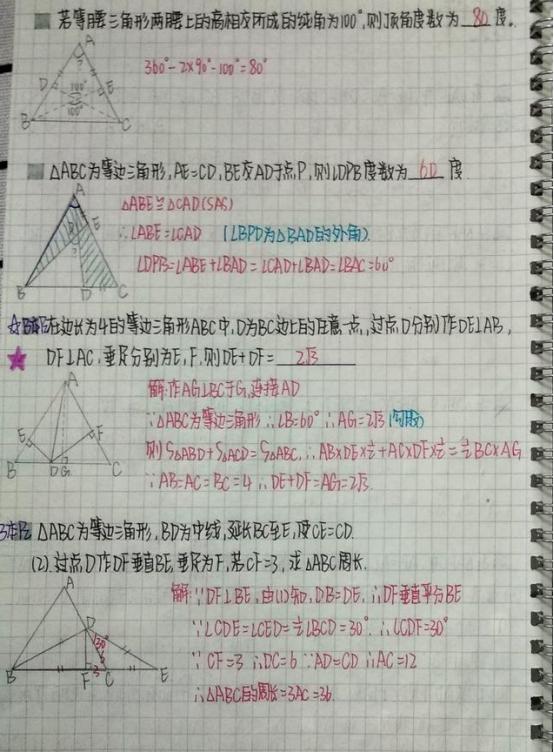 若等腰三角形两腰上的高相交所成的钝角为100°,则顶角度数为 80 度。
360°-2×90°-100°=80°
A
D
E
100°
100°
B
C
△ABC为等边三角形,AE=CD,BE交AD于点P,则∠DPB度数为 60 度
△ABE≌△CAD(SAS)
∴∠ABE=∠CAD (∠BPD为△BAD的外角).
∠DPB=∠ABE+∠BAD=∠CAD+∠BAD=∠BAC=60°
A
E
B
D
C
在边长为4的等边三角形ABC中,D为BC边上的任意一点,过点D分别作DE⊥AB,
DF⊥AC,垂足分别为E,F,则DE+DF= 2√3
解:作AG⊥BC于G,连接AD
∵△ABC为等边三角形∴∠B=60°∴AG=2√3(勾股)
则S△ABD+S△ACD=S△ABC,∴AB×DE×½+AC×DF×½=½BC×AG
∵AB=AC=BC=4∴DE+DF=AG=2√3.
A
E
F
B
D
G
C
△ABC为等边三角形,BD为中线,延长BC至E,使CE=CD.
(2).过点D作DF垂直BE,垂足为F,若CF=3,求△ABC周长.
解:∵DF⊥BE,由(1)知,DB=DE,∴DF垂直平分BE
∵∠CDE=∠CED=½∠BCD=30°∴∠CDF=30°
∵CF=3∴DC=6∵AD=CD∴AC=12
∴△ABC的周长=3AC=36.
A
D
30°
6
B
F
3
C
E